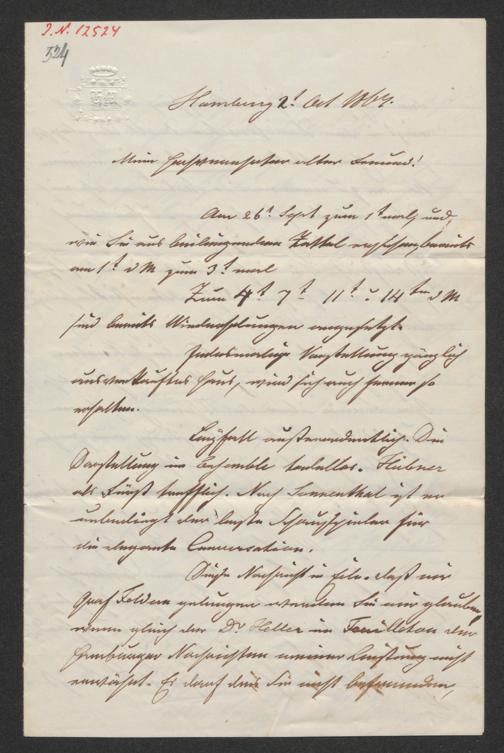 J. N. 12524
324
Hamburg 2t Oct 1867.
Mein hochverehrter alter Freund!
Am 26t Sept zum 1t mal, und,
wie Sie aus beiliegendem Zettel ersehen, bereits
am 1t d M zum 3t mal
Zum 4t 7t 11t u 14ten d M
sind bereits Wiederholungen angesetzt.
Jedesmalige Vorstellung gänzlich
ausverkauftes Haus, wird sich auch ferner so
erhalten.
Beifall außerordentlich. Die
Darstellung im Ensemble tadellos. Hübner
als Fürst trefflich. Nach Sonnenthal ist er
unbedingt der beste Schauspieler für
die elegante Conversation.
Diese Nachricht in Eile. daß mir
Graf Feldern gelungen werden Sie mir glauben,
wenn gleich der Dr. Heller im Feuilleton der
Hamburger Nachrichten meiner Leistung nicht
erwähnt. Es darf dies Sie nicht befremden,